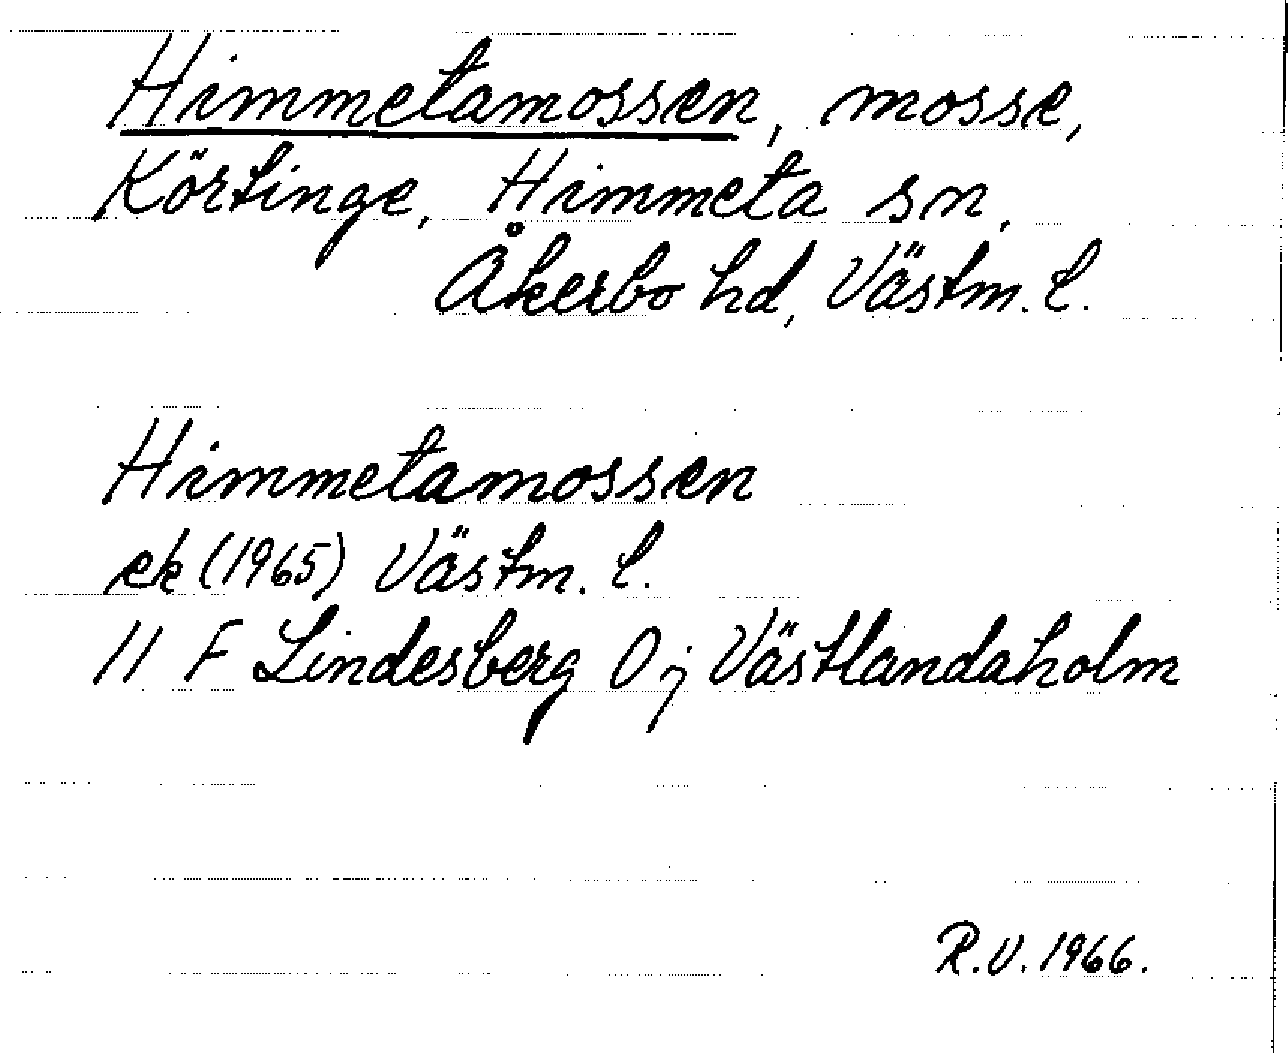 Himmetamossen, mosse,
Körtinge, Himmeta sn,
Åkerbo hd, Västm. l.
Himmetamossen
ek (1965) Västm. l.
11 F Lindesberg 0 j Västlandaholm
R.V. 1966.